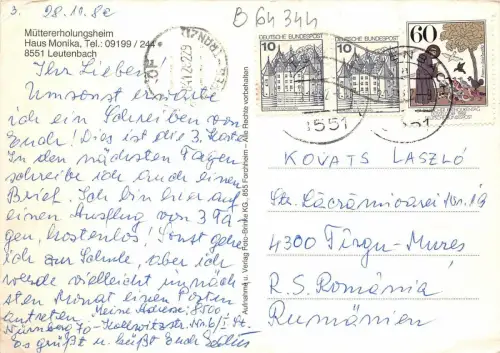 3. 28.11.82
B 64344
Müttererholungsheim
Haus Monika, Tel.: 09199 / 244
8551 Leutenbach
Ihr Lieben!
Umsonst erwarte
ich ein Schreiben von
Euch! Dies ist die 3. Karte.
In den nächsten Tagen
schreibe ich auch einen
Brief. Ich bin hier auf
einen Ausflug von 3 Ta-
gen, kostenlos! Sonst gehe
ich zur Schule, aber ich
werde vielleicht im näch-
sten Monat einen Posten
antreten. Meine Adresse: 8500
Nürnberg 70 - Kollwitzstr. Nr. 6/I St.
Es grüßt u. küßt Euch
Aufnahme u. Verlag Foto-Brinke KG., 855 Forchheim – Alle Rechte vorbehalten
10 DEUTSCHE BUNDESPOST
10 DEUTSCHE BUNDESPOST
60
8551
KOVATS LASZLÓ
Str. Lăcrămioarei Nr. 19
4300 Tîrgu-Mureş
R.S. Romănia
Rumänien